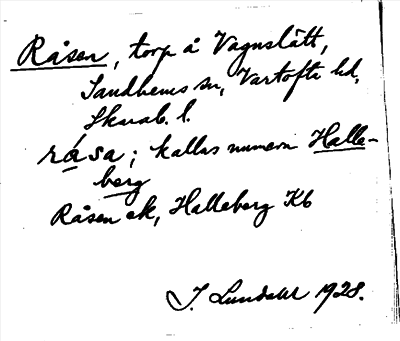 Råsen, torp å Vagnslätt,
Sandhems sn, Vartofta hd,
Skarab. l.
råsa; kallas numera Halle-
berg
Råsen ek, Halleberg Kb
J. Lundahl 1928.